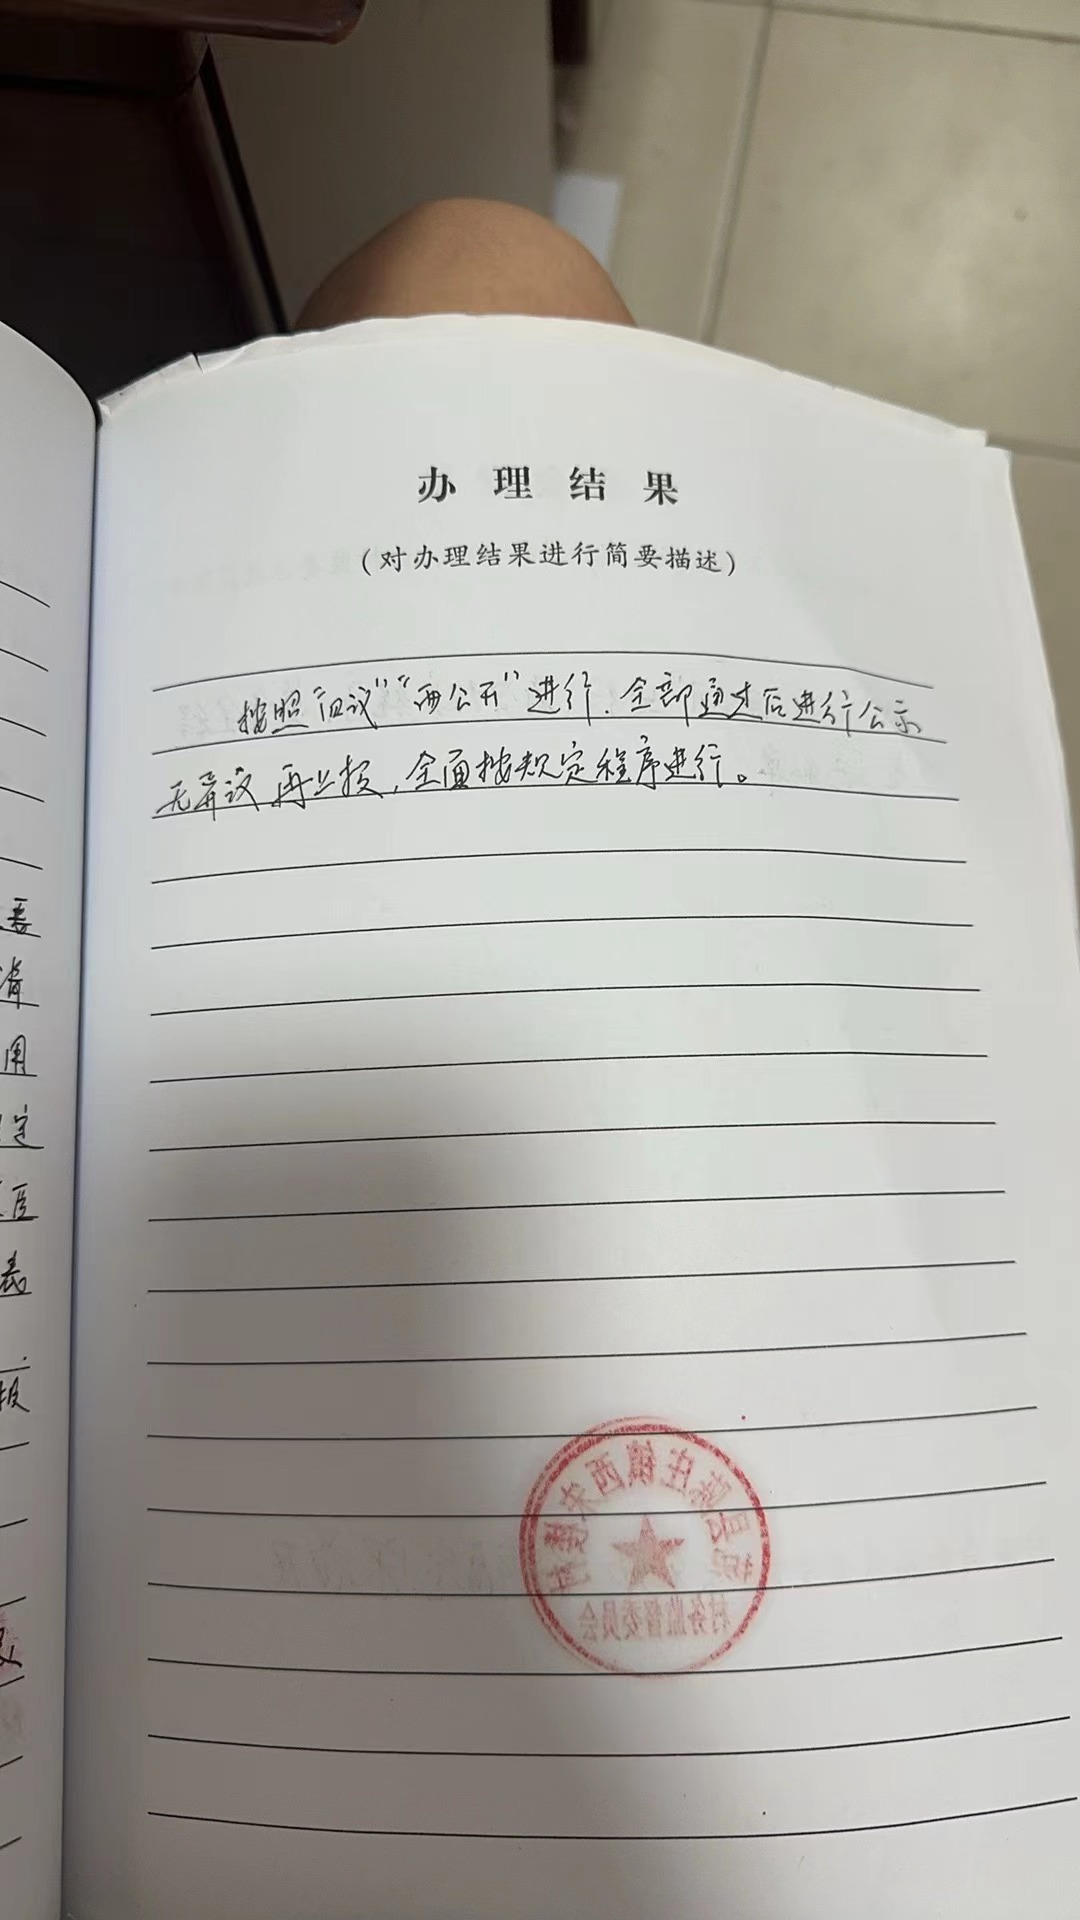 办理结果
（对办理结果进行简要描述）
按照“四议”“两公开”进行.全部通过后进行公示
无异议再上报,全面按规定程序进行。
县陈庄镇西宋
村务监督委员会
用
定
表